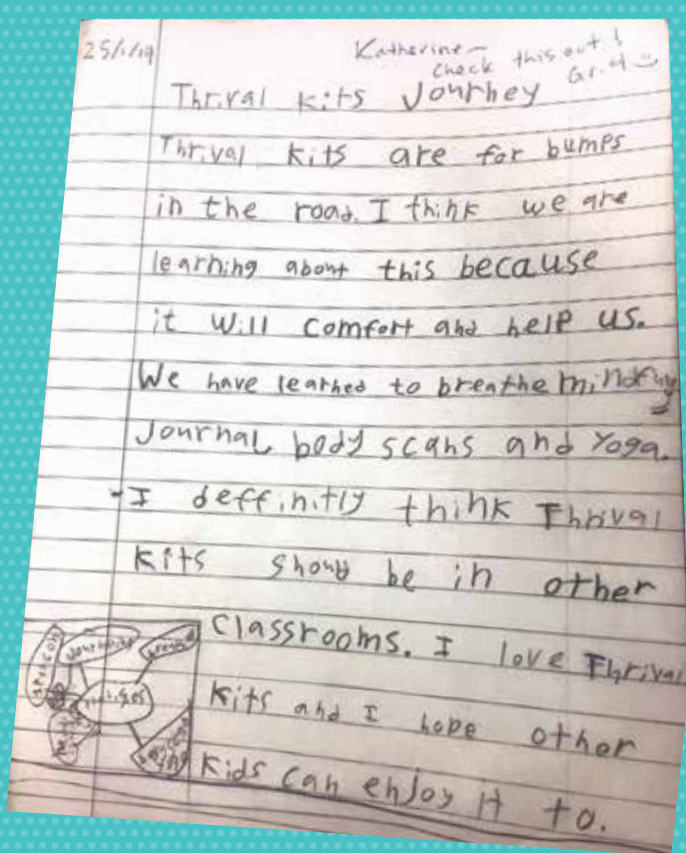 25/1/19
Katherine -
Check this out!
Gr. 4
Thrival kits Journey
Thrival kits are for bumps
in the road. I think we are
learning about this because
it will comfort and help us.
We have learned to breathe mindfuly
Journal body scans and Yoga.
-I deffinitly think Thrival
kits be in other
classrooms. I love Thrival
kits and I hope other
kids can enjoy it to.